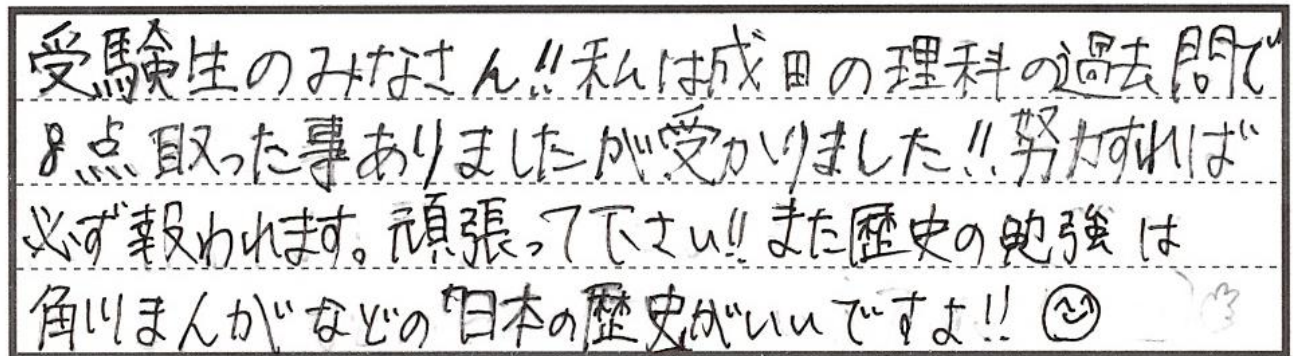 受験生のみなさん!!私は成田の理科の過去問で
8点取った事ありましたが受かりました!!努力すれば
必ず報われます。頑張って下さい!!また歴史の勉強は
角川まんがなどの日本の歴史がいいですよ!!